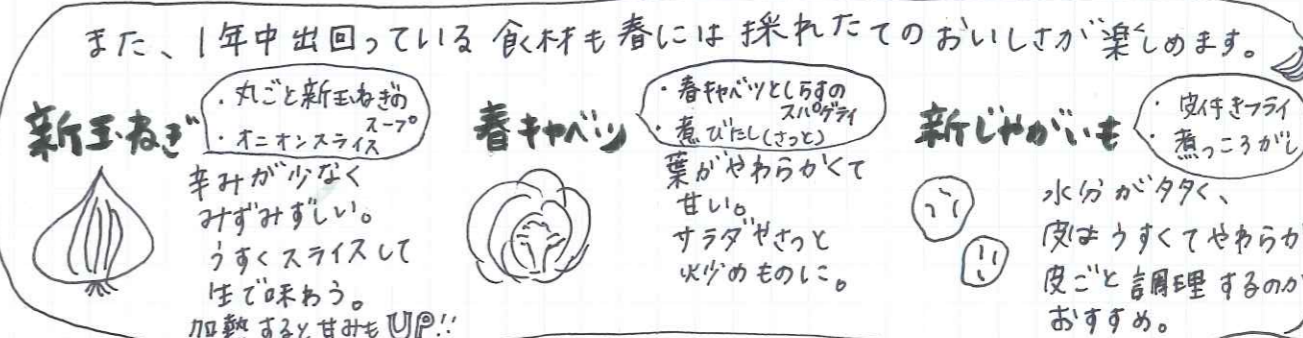 また、1年中出回っている食材も春には採れたてのおいしさが楽しめます。
新玉ねぎ
・丸ごと新玉ねぎの
スープ
・オニオンスライス
辛みが少なく
みずみずしい。
うすくスライスして
生で味わう。
加熱すると甘みもUP!!
春キャベツ
・春キャベツとしらすの
スパゲティ
・煮びたし(さっと)
葉がやわらかくて
甘い。
サラダやさっと
炒めものに。
新じゃがいも
・皮付きフライ
・煮っころがし
水分が多く、
皮はうすくてやわらか
皮ごと調理するのが
おすすめ。